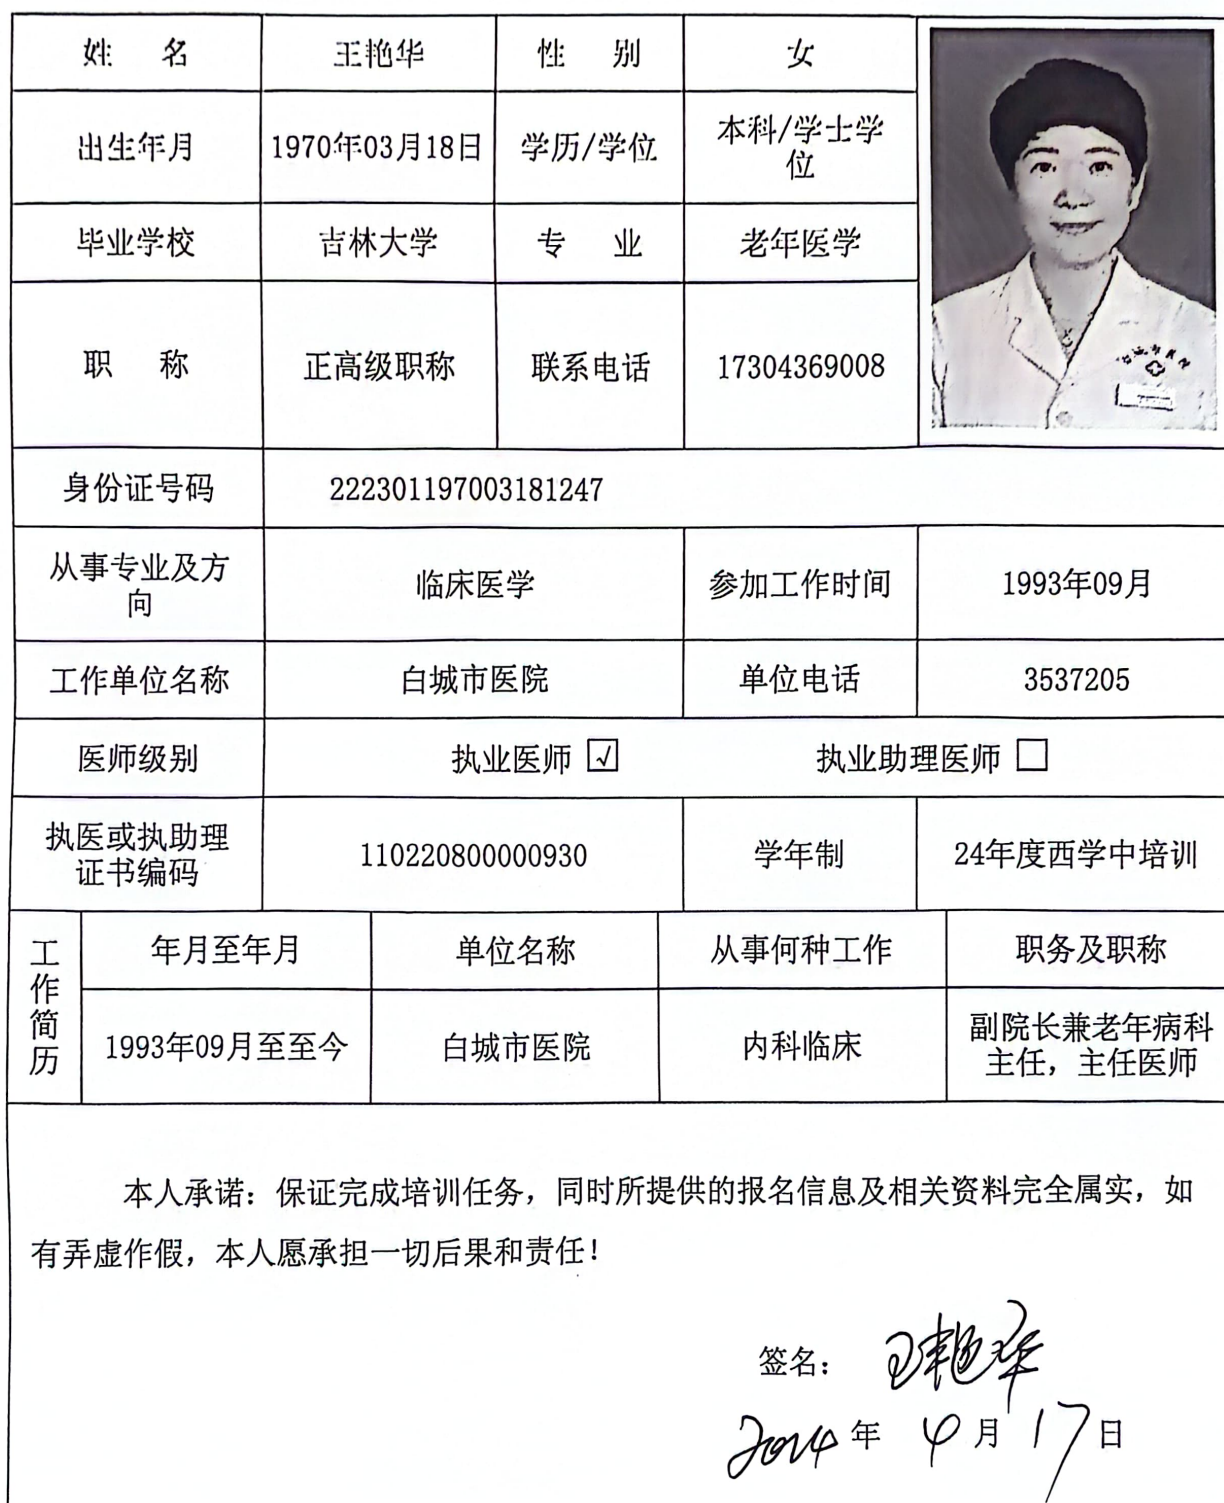 姓 名 王艳华 性 别 女
出生年月 1970年03月18日 学历/学位 本科/学士学
位
毕业学校 吉林大学 专 业 老年医学
职 称 正高级职称 联系电话 17304369008
身份证号码 222301197003181247
从事专业及方
向 临床医学 参加工作时间 1993年09月
工作单位名称 白城市医院 单位电话 3537205
医师级别 执业医师 ☑ 执业助理医师 □
执医或执助理
证书编码 110220800000930 学年制 24年度西学中培训
工作简历 年月至年月 单位名称 从事何种工作 职务及职称
1993年09月至至今 白城市医院 内科临床 副院长兼老年病科
主任，主任医师
本人承诺：保证完成培训任务，同时所提供的报名信息及相关资料完全属实，如
有弄虚作假，本人愿承担一切后果和责任！
签名： 王艳华
2024 年 4 月 17 日